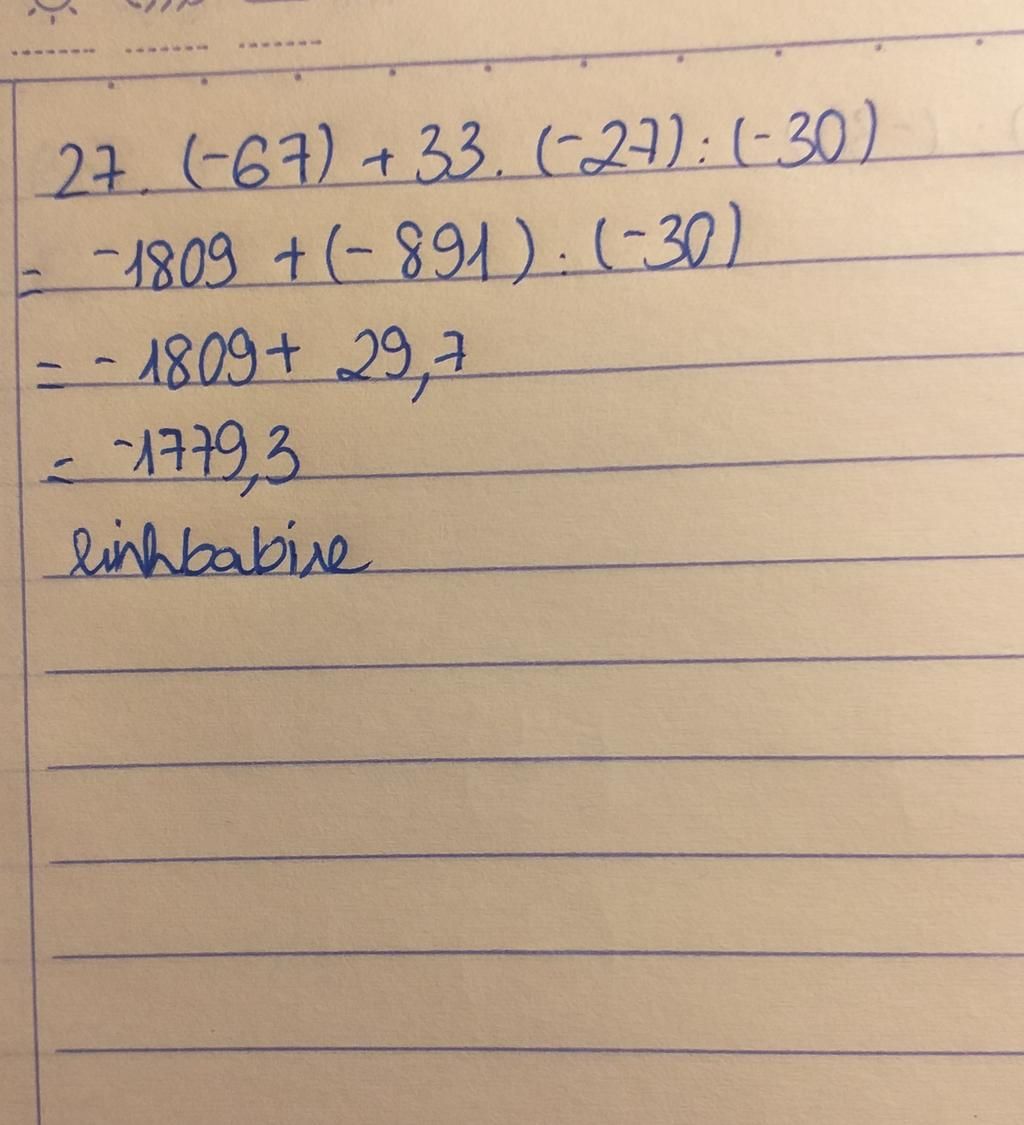 27. (-67) + 33. (-27) : (-30)
= -1809 + (-891) : (-30)
= - 1809 + 29,7
= -1779,3